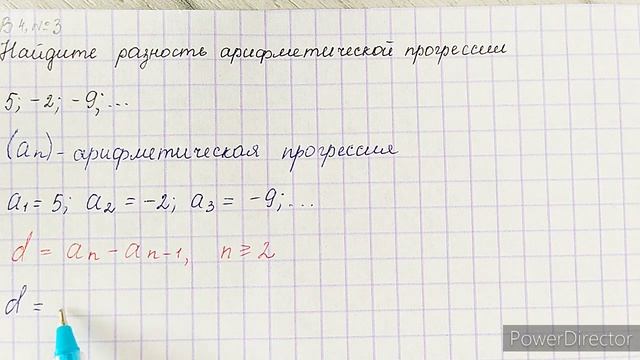 В 4, №3
Найдите разность арифметической прогрессии
5; -2; -9; ...
(aₙ) - арифметическая прогрессия
a₁ = 5; a₂ = -2; a₃ = -9; ...
d = aₙ - aₙ₋₁, n ≥ 2
d =
PowerDirector